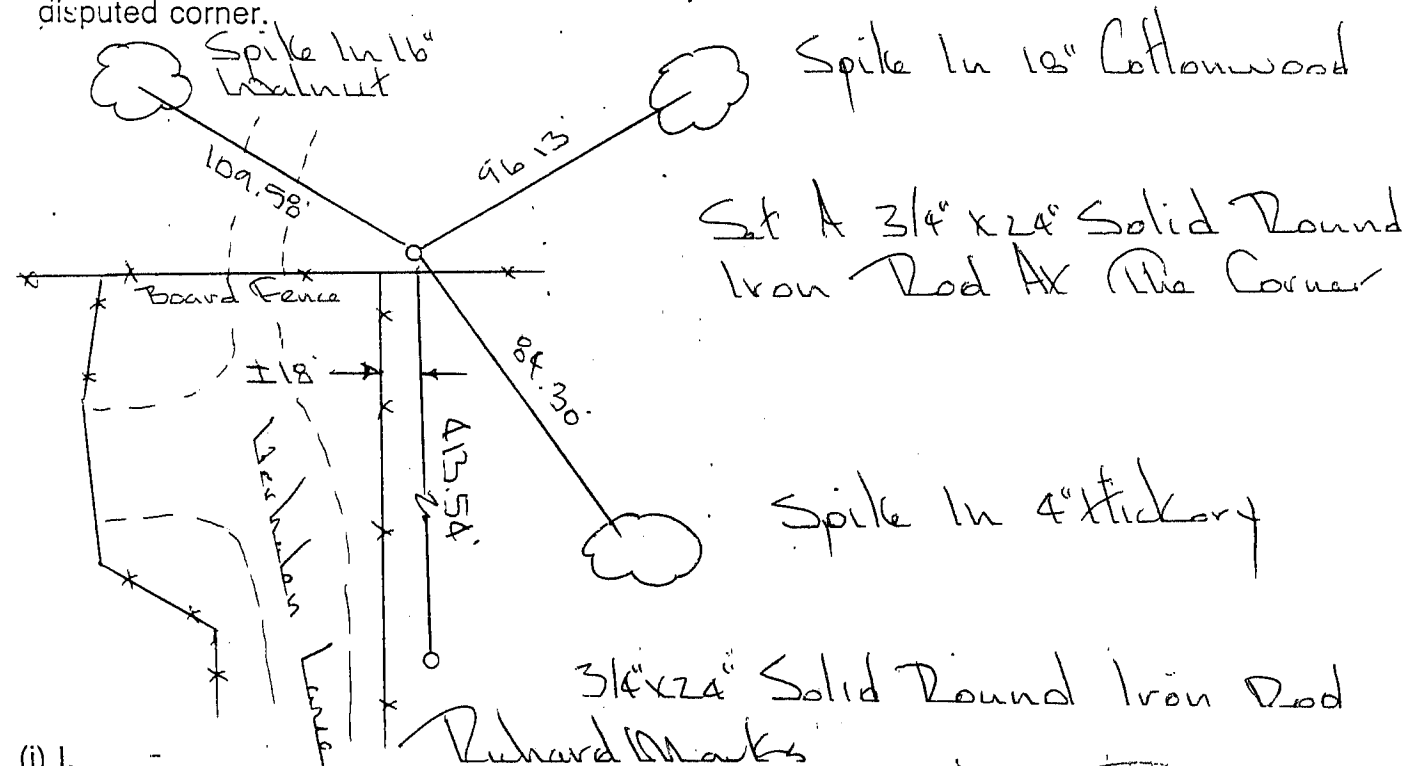 disputed corner.
Spike In 16"
Walnut
Spike In 18" Cottonwood
109.58'
96.13'
Set A 3/4" x 24" Solid Round
Iron Rod At The Corner
Board Fence
±18'
84.30'
413.54'
Spike In 4" Hickory
Lane
3/4" x 24" Solid Round Iron Rod
Richard Marks
(i)